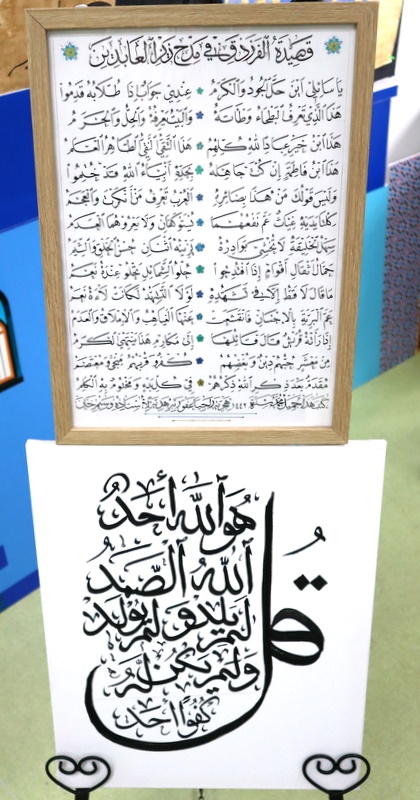 قصيدة الفرزدق في مدح زين العابدين
يا سائلي أين حل الجود والكرم عندي جواب إذا طلابه قدموا
هذا الذي تعرف البطحاء وطأته والبيت يعرفه والحل والحرم
هذا ابن خير عباد الله كلهم هذا التقي النقي الطاهر العلم
هذا ابن فاطمة إن كنت جاهله بجده أنبياء الله قد ختموا
وليس قولك من هذا بضائره العرب تعرف من أنكرت والعجم
كلتا يديه غياث عم نفعهما يستوكفان ولا يعروهما العدم
سهل الخليقة لا تخشى بوادره يزينه اثنان حسن الخلق والشيم
حمال أثقال أقوام إذا افتدحوا حلو الشمائل تحلو عنده نعم
ما قال لا قط إلا في تشهده لولا التشهد كانت لاءه نعم
عم البرية بالإحسان فانقشعت عنها الغياهب والإملاق والعدم
إذا رأته قريش قال قائلها إلى مكارم هذا ينتهي الكرم
من معشر حبهم دين وبغضهم كفر وقربهم منجى ومعتصم
مقدم بعد ذكر الله ذكرهم في كل بدء ومختوم به الكلم
قُل
هُوَ اللّٰهُ أَحَدٌ
اللّٰهُ الصَّمَدُ
لَمْ يَلِدْ وَلَمْ يُولَدْ
وَلَمْ يَكُن لَّهُ
كُفُوًا أَحَدٌ